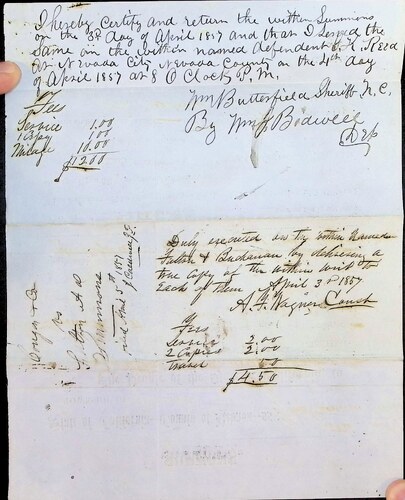 I hereby certify and return the within Summons
on the 3d day of April 1857 and that I served the
same on the within named defendent C. H. Reed
at Nevada City, Nevada County on the 4th day
of April 1857 at 8 O Clock P. M.
Wm Butterfield Sheriff N. C.
By Wm Bidwell
Dep
Fees
Service 1.00
1 Copy 1.00
Mileage 10.00
$12.00
Duly executed on the within named
& Buchanan by delivering a
true copy of the within writ to
each of them April 3d 1857
A. J. Wagner Const
Fees
Service 2.00
2 Copies 2.00
travel 50
$4.50
vs
Summons